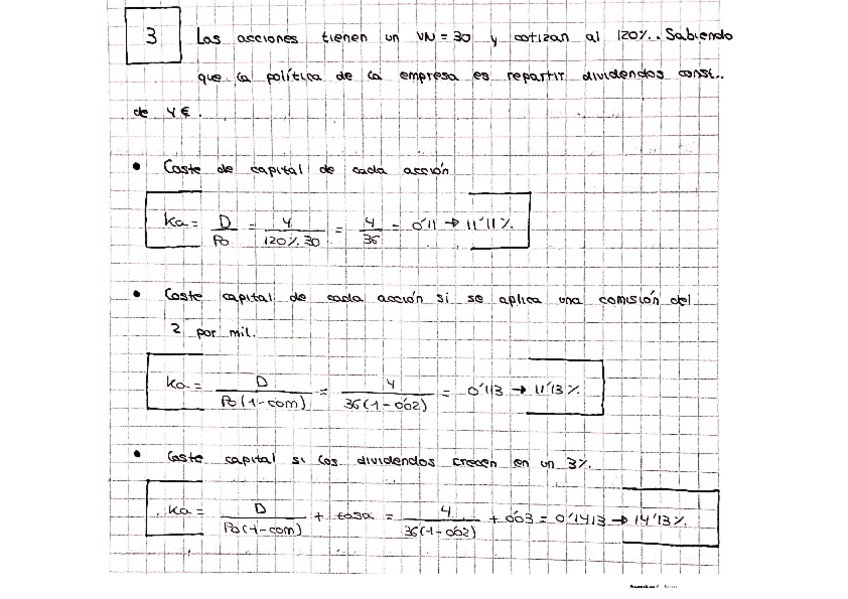 3 Las acciones tienen un VN = 30 y cotizan al 120%.. Sabiendo
que la política de la empresa es repartir dividendos const..
de 4€.
• Coste de capital de cada acción
Ka = D / Po = 4 / 120%.30 = 4 / 36 = 0'11 → 11'11%.
• Coste capital de cada acción si se aplica una comisión del
2 por mil.
Ka = D / Po(1-com) = 4 / 36(1-0'02) = 0'113 → 11'13%.
• Coste capital si los dividendos crecen en un 3%.
Ka = D / Po(1-com) + tasa = 4 / 36(1-0'02) + 0'03 = 0'1413 → 14'13%.